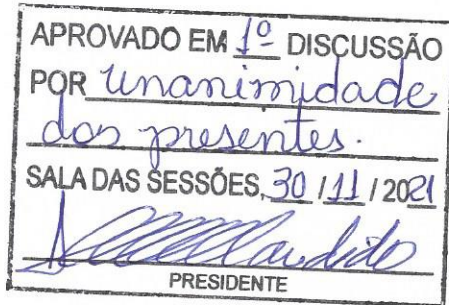 APROVADO EM 1º DISCUSSÃO
POR unanimidade
dos presentes.
SALA DAS SESSÕES, 30 / 11 / 2021
PRESIDENTE